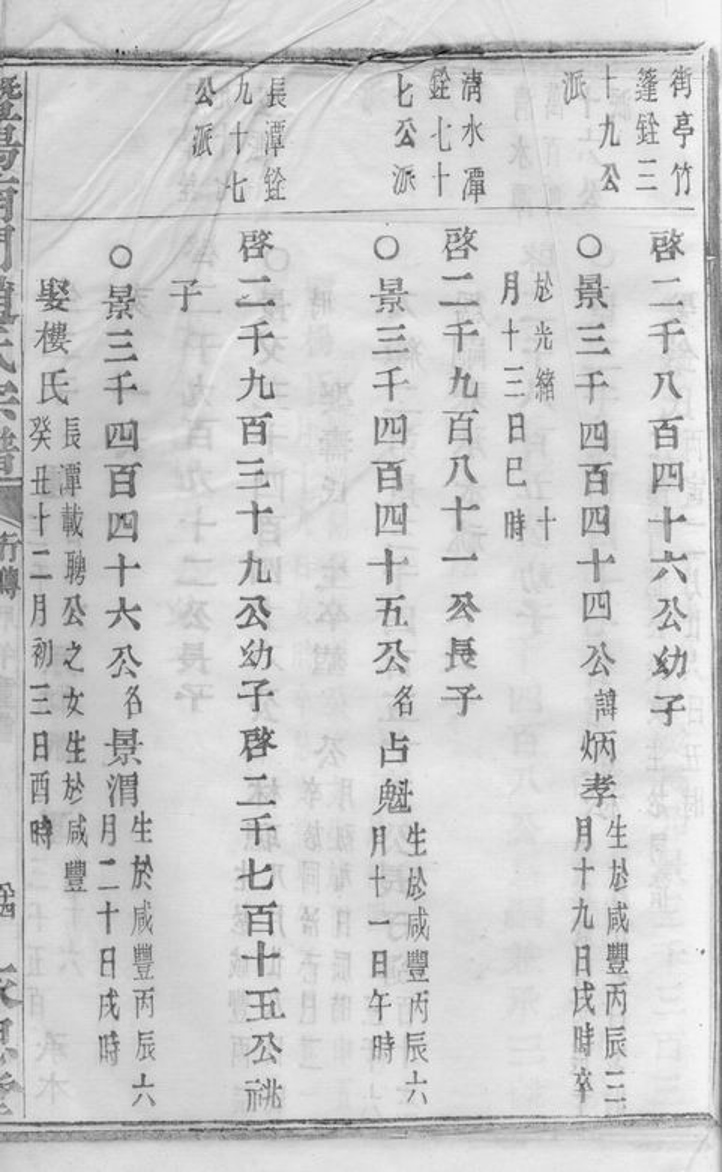 街亭竹
篷銓三
十九公
派
啓二千八百四十六公幼子
○景三千四百四十四公諱炳孝生於咸豐丙辰三
月十九日戌時卒
於光緒 十
月十三日巳時
清水潭
銓七十
七公派
啓二千九百八十一公長子
○景三千四百四十五公名占魁生於咸豐丙辰六
月十一日午時
長潭銓
九十七
公派
啓二千九百三十九公幼子啓二千七百十五公祧
子
○景三千四百四十六公名景渭生於咸豐丙辰六
月二十日戌時
娶樓氏長潭載聘公之女生於咸豐
癸丑十二月初三日酉時
行傳